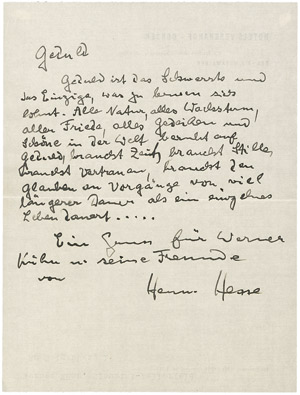 Geduld
Geduld ist das Schwerste und
das Einzige, was zu lernen sich
lohnt. Alle Natur, alles Wachstum,
aller Friede, alles Gedeihen und
Schöne in der Welt beruht auf
Geduld, braucht Zeit, braucht Stille,
braucht Vertrauen, braucht den
Glauben an Vorgänge von viel
längerer Dauer als ein einzelnes
Leben dauert.....
Ein Gruss für Werner
Kühn u. seine Freunde
von Hesse